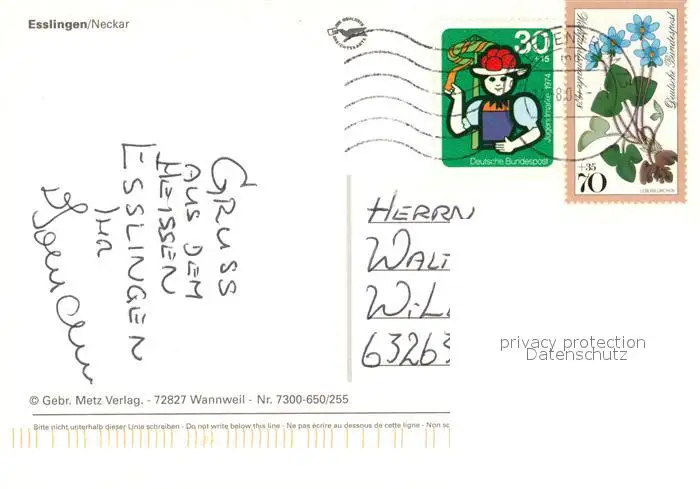 Esslingen/Neckar
30
+15
Jugendmarke 1974
Deutsche Bundespost
Deutsche Bundespost
+35
70
GRUSS
AUS DEM
HEISSEN
ESSLINGEN
IHR
HERRN
WALT
WILL
63263
privacy protection
Datenschutz
© Gebr. Metz Verlag. - 72827 Wannweil - Nr. 7300-650/255
Bitte nicht unterhalb dieser Linie schreiben - Do not write below this line - Ne pas écrire au dessous de cette ligne - Non sc